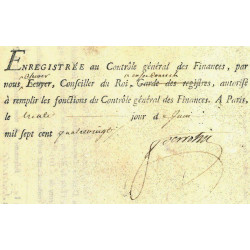 ENREGISTRÉE au Contrôle général des Finances, par
nous, Ecuyer, Conseiller du Roi, Garde des registres, autorisé
à remplir les fonctions du Contrôle général des Finances. A Paris,
le jour de Juin
mil sept cent quatrevingt